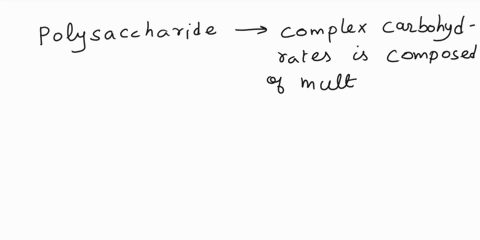 Polysaccharide → complex carbohyd-
rates is composed
of mult